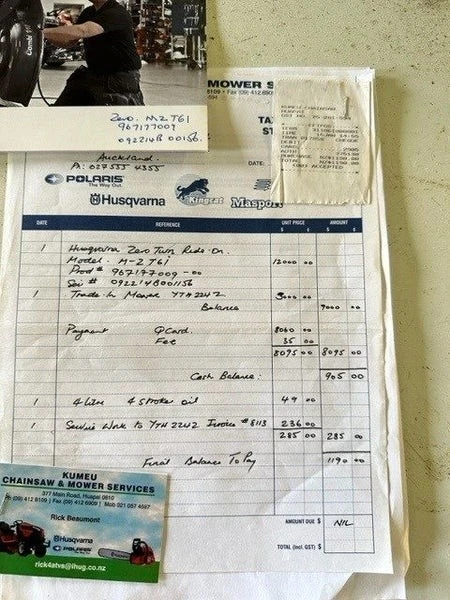 Combi
Zero. MZ T61
967177009
092214B 00156.
MOWER S
Auckland.
Ph: 027555 4355
DATE:
POLARIS
The Way Out.
Husqvarna
Kingcat
Masport
DATE REFERENCE UNIT PRICE AMOUNT
$ ¢ $ ¢
1 Husqvarna Zero Turn Ride-On.
Model. M-Z T61 12000 00
Prod # 967177009-00
Seri # 092214B001156
1 Trade In Mower YTH2242 3000 00
Balance 9000 00
Payment QCard. 8060 00
Fee 35 00
8095 00 8095 00
Cash Balance: 905 00
1 4 Litre 4 stroke oil 49 00
1 Service Work to YTH 2242 Invoice #8113 236 00
285 00 285 00
Final Balance To Pay 1190 00
AMOUNT DUE $ NIL
TOTAL (Incl. GST) $
KUMEU CHAINSAW
CHEQUE
DEBIT
KUMEU
CHAINSAW & MOWER SERVICES
377 Main Road, Huapai 0810
Ph (09) 412 8109 | Fax (09) 412 6909 | Mob 021 087 4597
Rick Beaumont
Husqvarna
POLARIS
rick4atvs@ihug.co.nz